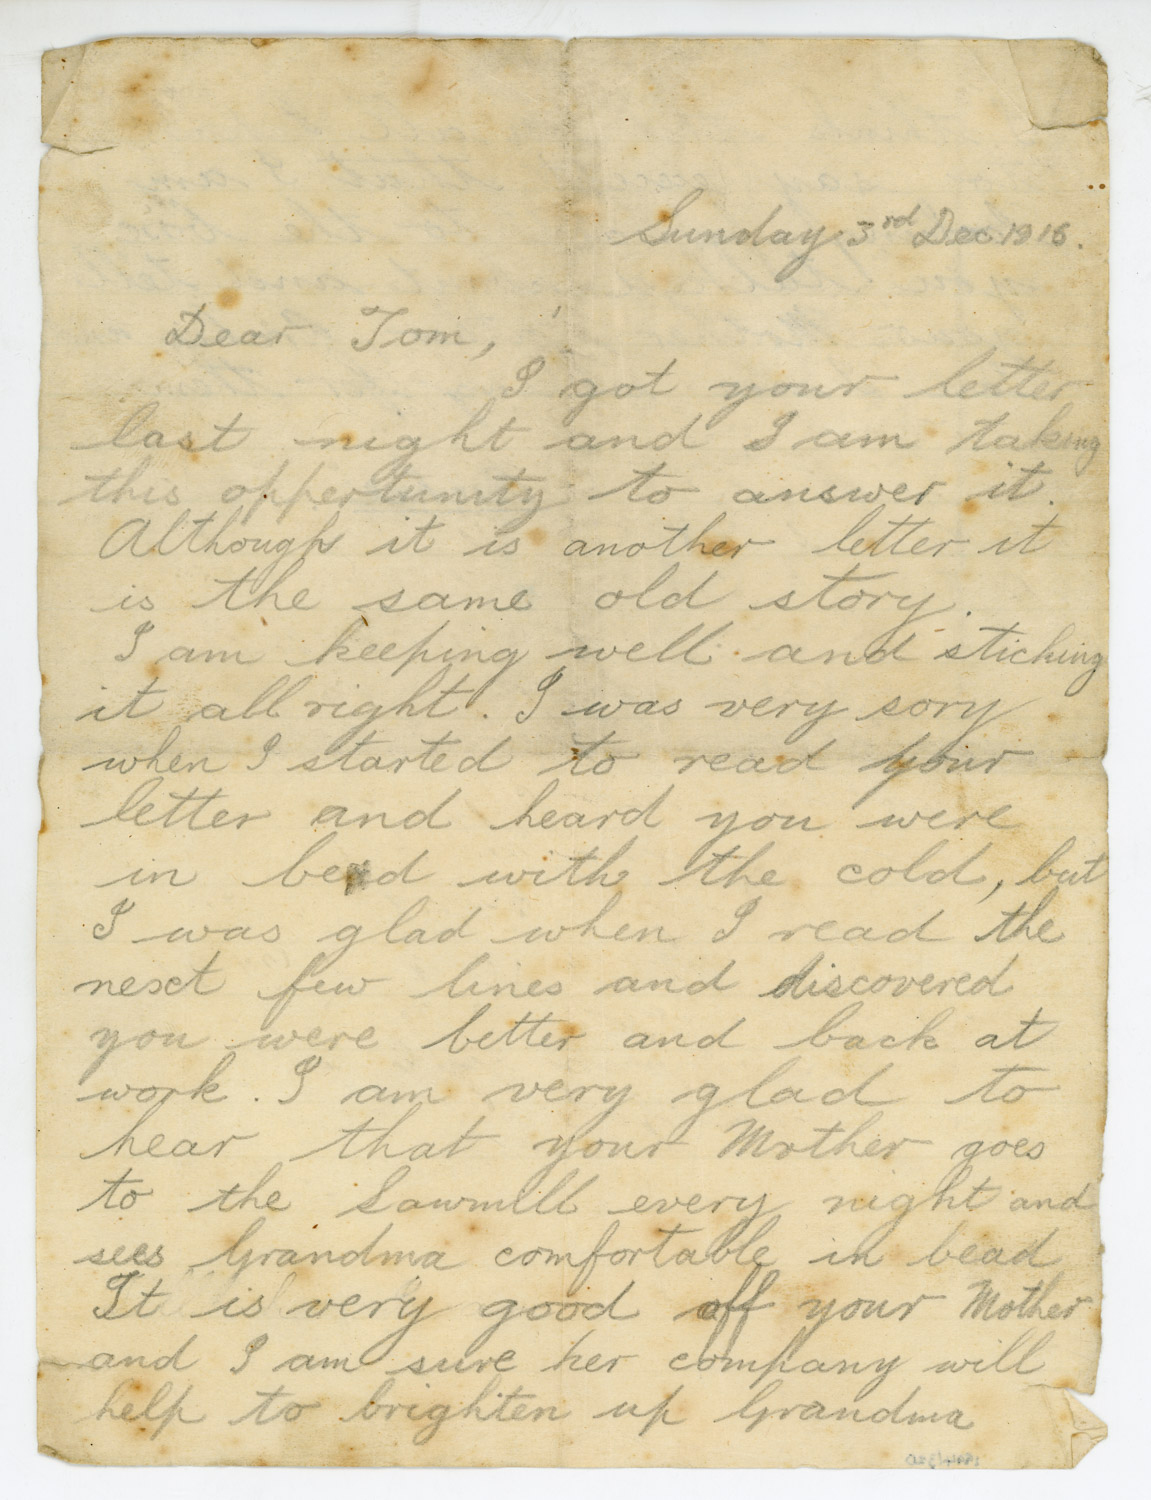 Sunday 3rd Dec 1916.
Dear Tom,
I got your letter
last night and I am taking
this oppertunity to answer it.
Although it is another letter it
is the same old story.
I am keeping well and sticking
it all right. I was very sory
when I started to read your
letter and heard you were
in bead with the cold, but
I was glad when I read the
next few lines and discovered
you were better and back at
work. I am very glad to
hear that your Mother goes
to the Sawmill every night and
sees Grandma comfortable in bead
It is very good off your Mother
and I am sure her company will
help to brighten up Grandma